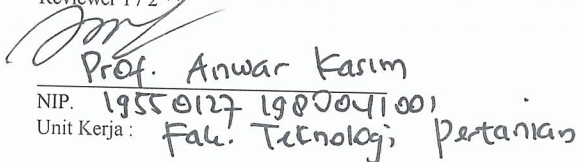 Reviewer 1 / 2
Prof. Anwar Kasim
NIP. 19550127 198004 1 001
Unit Kerja : Fak. Teknologi Pertanian